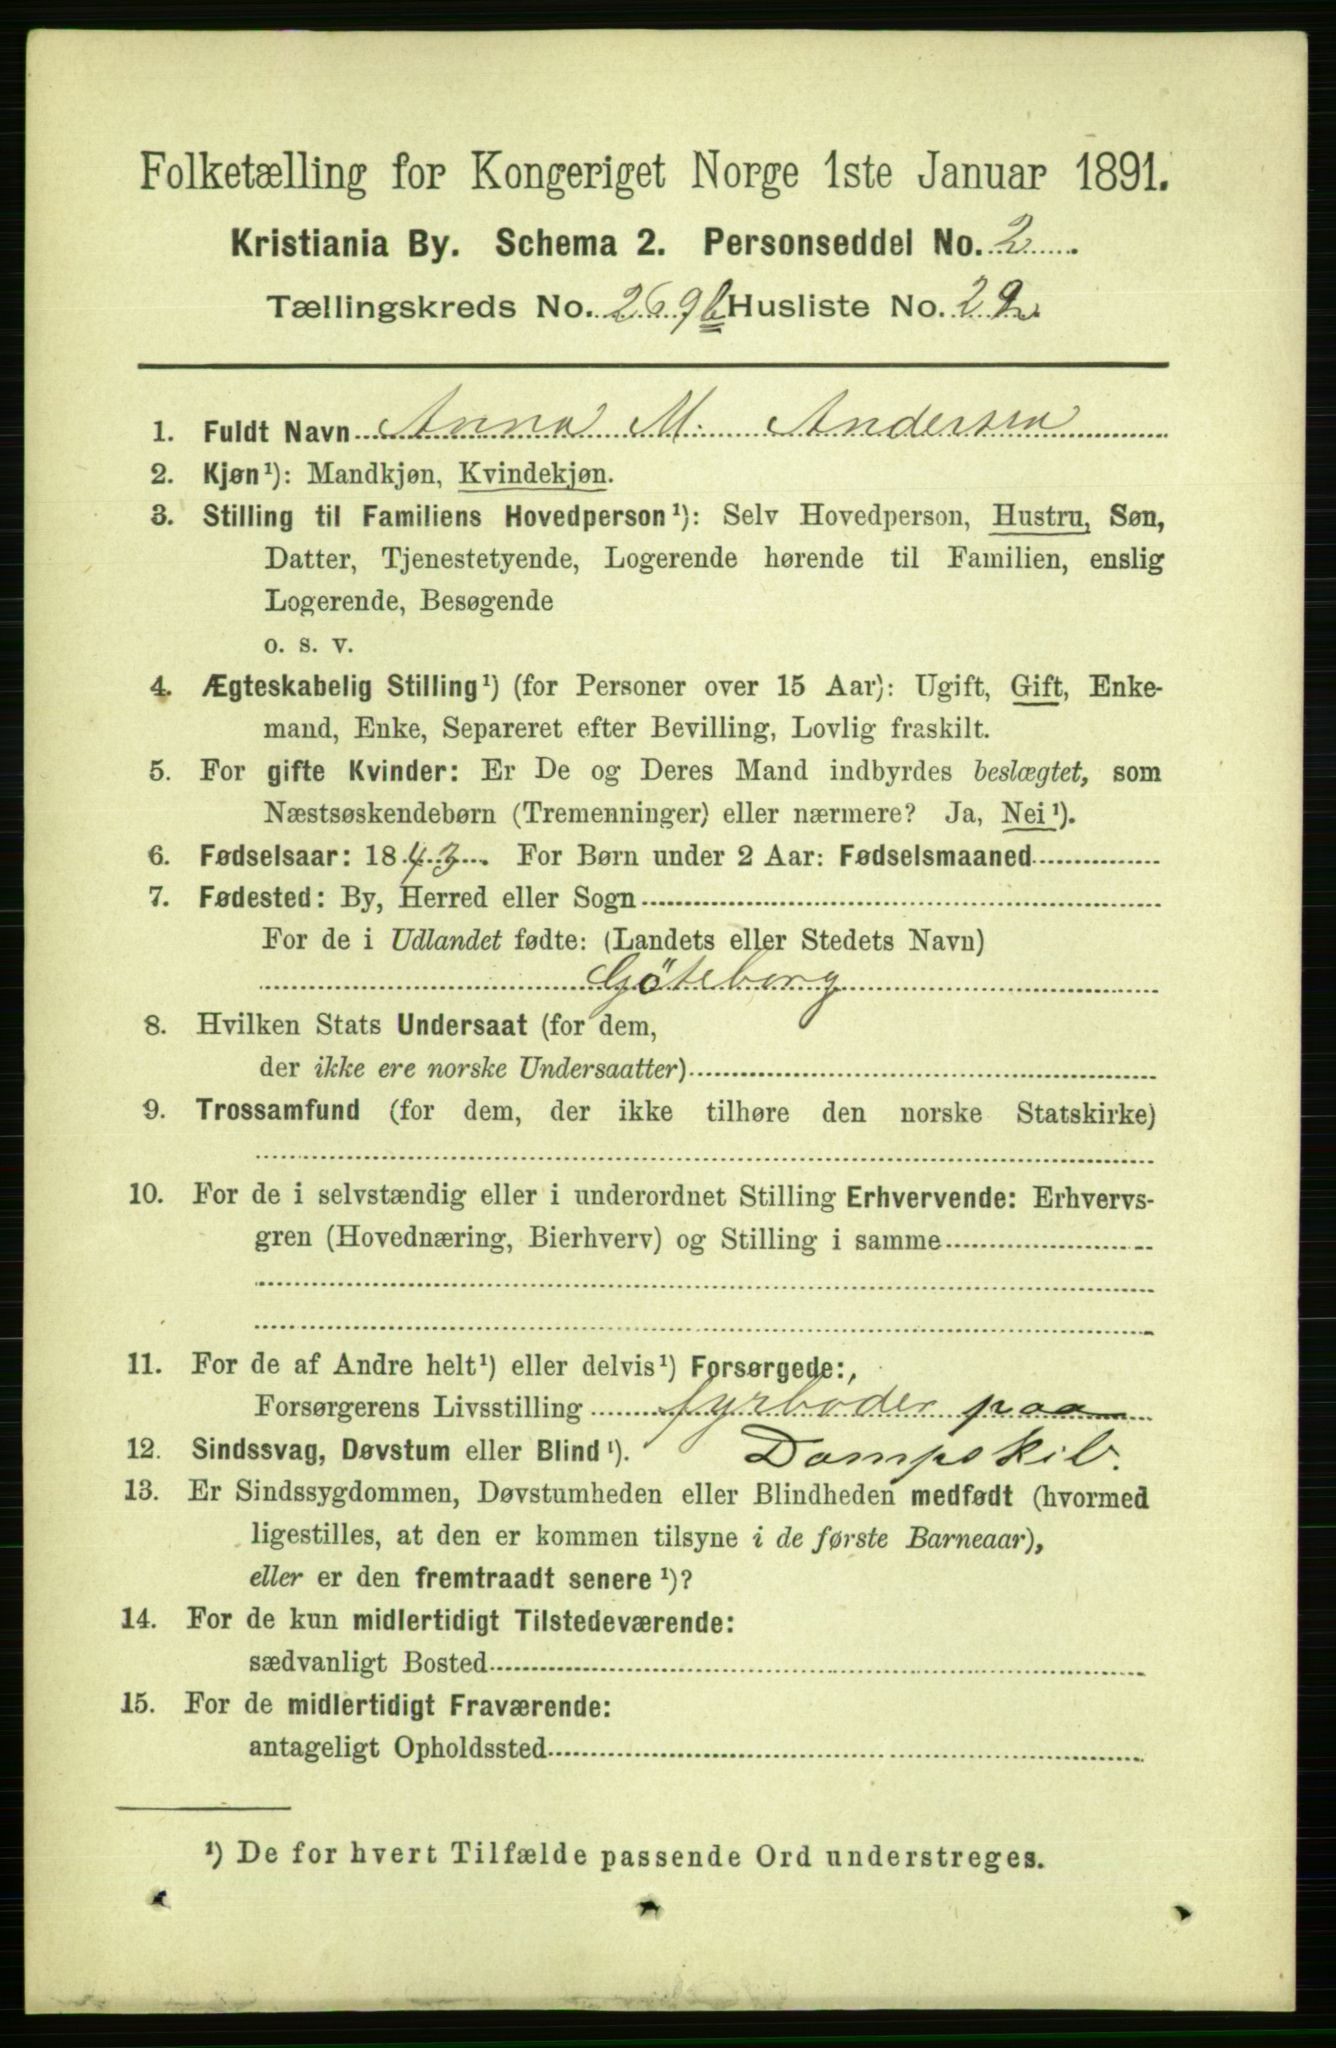 Folketælling for Kongeriget Norge 1ste Januar 1891.
Kristiania By. Schema 2. Personseddel No. 2
Tællingskreds No. 269b Husliste No. 29
1. Fuldt Navn Anna M. Andersen
2. Kjøn¹): Mandkjøn, Kvindekjøn.
3. Stilling til Familiens Hovedperson¹): Selv Hovedperson, Hustru, Søn,
Datter, Tjenestetyende, Logerende hørende til Familien, enslig
Logerende, Besøgende
o. s. v.
4. Ægteskabelig Stilling¹) (for Personer over 15 Aar): Ugift, Gift, Enke-
mand, Enke, Separeret efter Bevilling, Lovlig fraskilt.
5. For gifte Kvinder: Er De og Deres Mand indbyrdes beslægtet, som
Næstsøskendebørn (Tremenninger) eller nærmere? Ja, Nei¹).
6. Fødselsaar: 1843. For Børn under 2 Aar: Fødselsmaaned
7. Fødested: By, Herred eller Sogn
For de i Udlandet fødte: (Landets eller Stedets Navn)
Göteborg
8. Hvilken Stats Undersaat (for dem,
der ikke ere norske Undersaatter)
9. Trossamfund (for dem, der ikke tilhøre den norske Statskirke)
10. For de i selvstændig eller i underordnet Stilling Erhvervende: Erhvervs-
gren (Hovednæring, Bierhverv) og Stilling i samme
11. For de af Andre helt¹) eller delvis¹) Forsørgede:,
Forsørgerens Livsstilling fyrbøder paa
12. Sindssvag, Døvstum eller Blind¹). Dampskib.
13. Er Sindssygdommen, Døvstumheden eller Blindheden medfødt (hvormed
ligestilles, at den er kommen tilsyne i de første Barneaar),
eller er den fremtraadt senere¹)?
14. For de kun midlertidigt Tilstedeværende:
sædvanligt Bosted
15. For de midlertidigt Fraværende:
antageligt Opholdssted
¹) De for hvert Tilfælde passende Ord understreges.